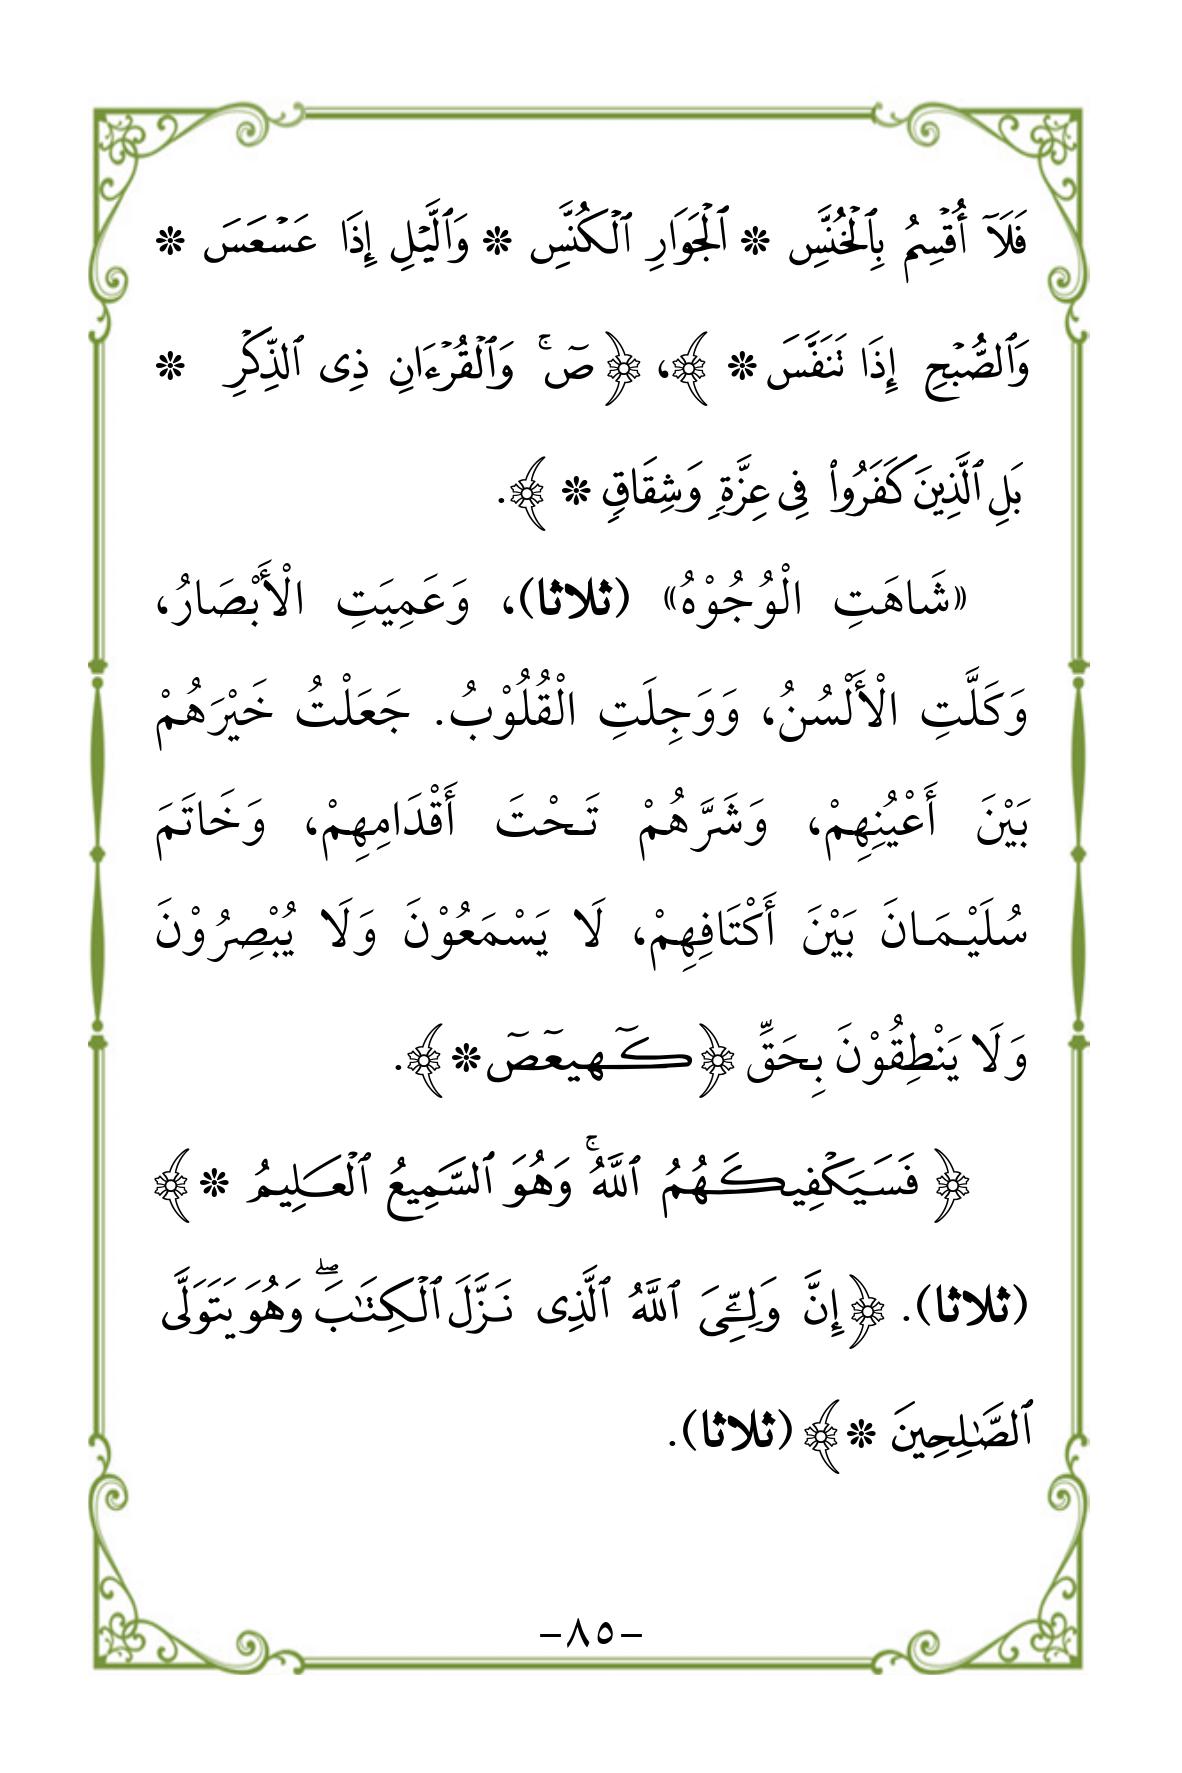 فَلَآ أُقۡسِمُ بِٱلۡخُنَّسِ * ٱلۡجَوَارِ ٱلۡكُنَّسِ * وَٱلَّيۡلِ إِذَا عَسۡعَسَ *
وَٱلصُّبۡحِ إِذَا تَنَفَّسَ * ﴾، ﴿صٓۚ وَٱلۡقُرۡءَانِ ذِى ٱلذِّكۡرِ *
بَلِ ٱلَّذِينَ كَفَرُواْ فِى عِزَّةٍ وَشِقَاقٍ * ﴾.
«شَاهَتِ الْوُجُوْهُ» (ثلاثا)، وَعَمِيَتِ الْأَبْصَارُ،
وَكَلَّتِ الْأَلْسُنُ، وَوَجِلَتِ الْقُلُوْبُ. جَعَلْتُ خَيْرَهُمْ
بَيْنَ أَعْيُنِهِمْ، وَشَرَّهُمْ تَحْتَ أَقْدَامِهِمْ، وَخَاتَمَ
سُلَيْمَانَ بَيْنَ أَكْتَافِهِمْ، لَا يَسْمَعُوْنَ وَلَا يُبْصِرُوْنَ
وَلَا يَنْطِقُوْنَ بِحَقٍّ ﴿كٓهيعٓصٓ *﴾.
﴿ فَسَيَكۡفِيكَهُمُ ٱللَّهُۚ وَهُوَ ٱلسَّمِيعُ ٱلۡعَلِيمُ * ﴾
(ثلاثا). ﴿إِنَّ وَلِـِّۧىَ ٱللَّهُ ٱلَّذِى نَزَّلَ ٱلۡكِتَٰبَۖ وَهُوَ يَتَوَلَّى
ٱلصَّٰلِحِينَ *﴾ (ثلاثا).
–٨٥–